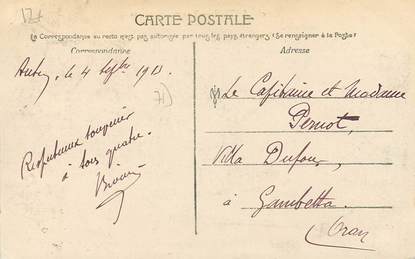 CARTE POSTALE
La Correspondance au recto n'est pas autorisée par tous les pays étrangers (Se renseigner à la Poste)
Correspondance
Adresse
le 4 7bre 1911
Respectueux souvenir
à tous quatre.
Le Capitaine et Madame
Pernot,
Villa Dufour,
à Gambetta
Oran